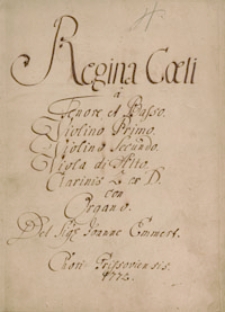 Regina Cœli
â
Tenore et Basso.
Violino Primo.
Violino Secundo.
Viola di Alto.
Clarinis 2 ex D.
con
Organo.
Del Sigr Joanne Emmert.
Chori
1774.